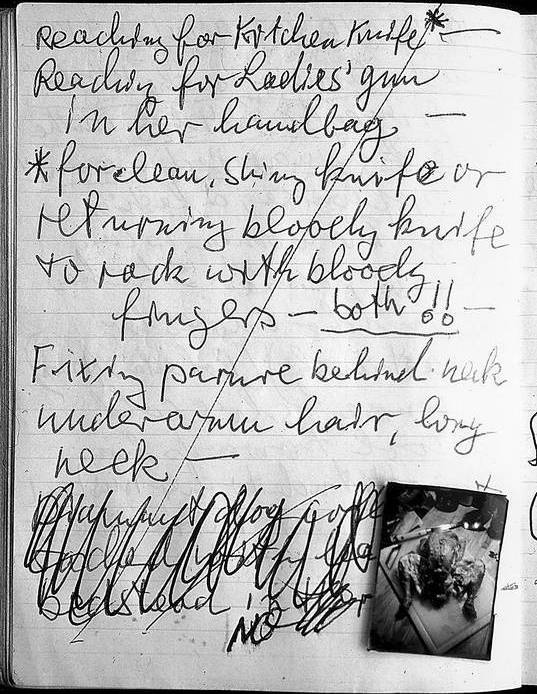 Reaching for Kitchen Knife* —
Reaching for Ladies' gun
in her handbag —
*for clean, shiny knife or
returning bloody knife
to rack with bloody
fingers — both!! —
Fixing parure behind neck
underarm hair, long
neck —
bedstead
NO